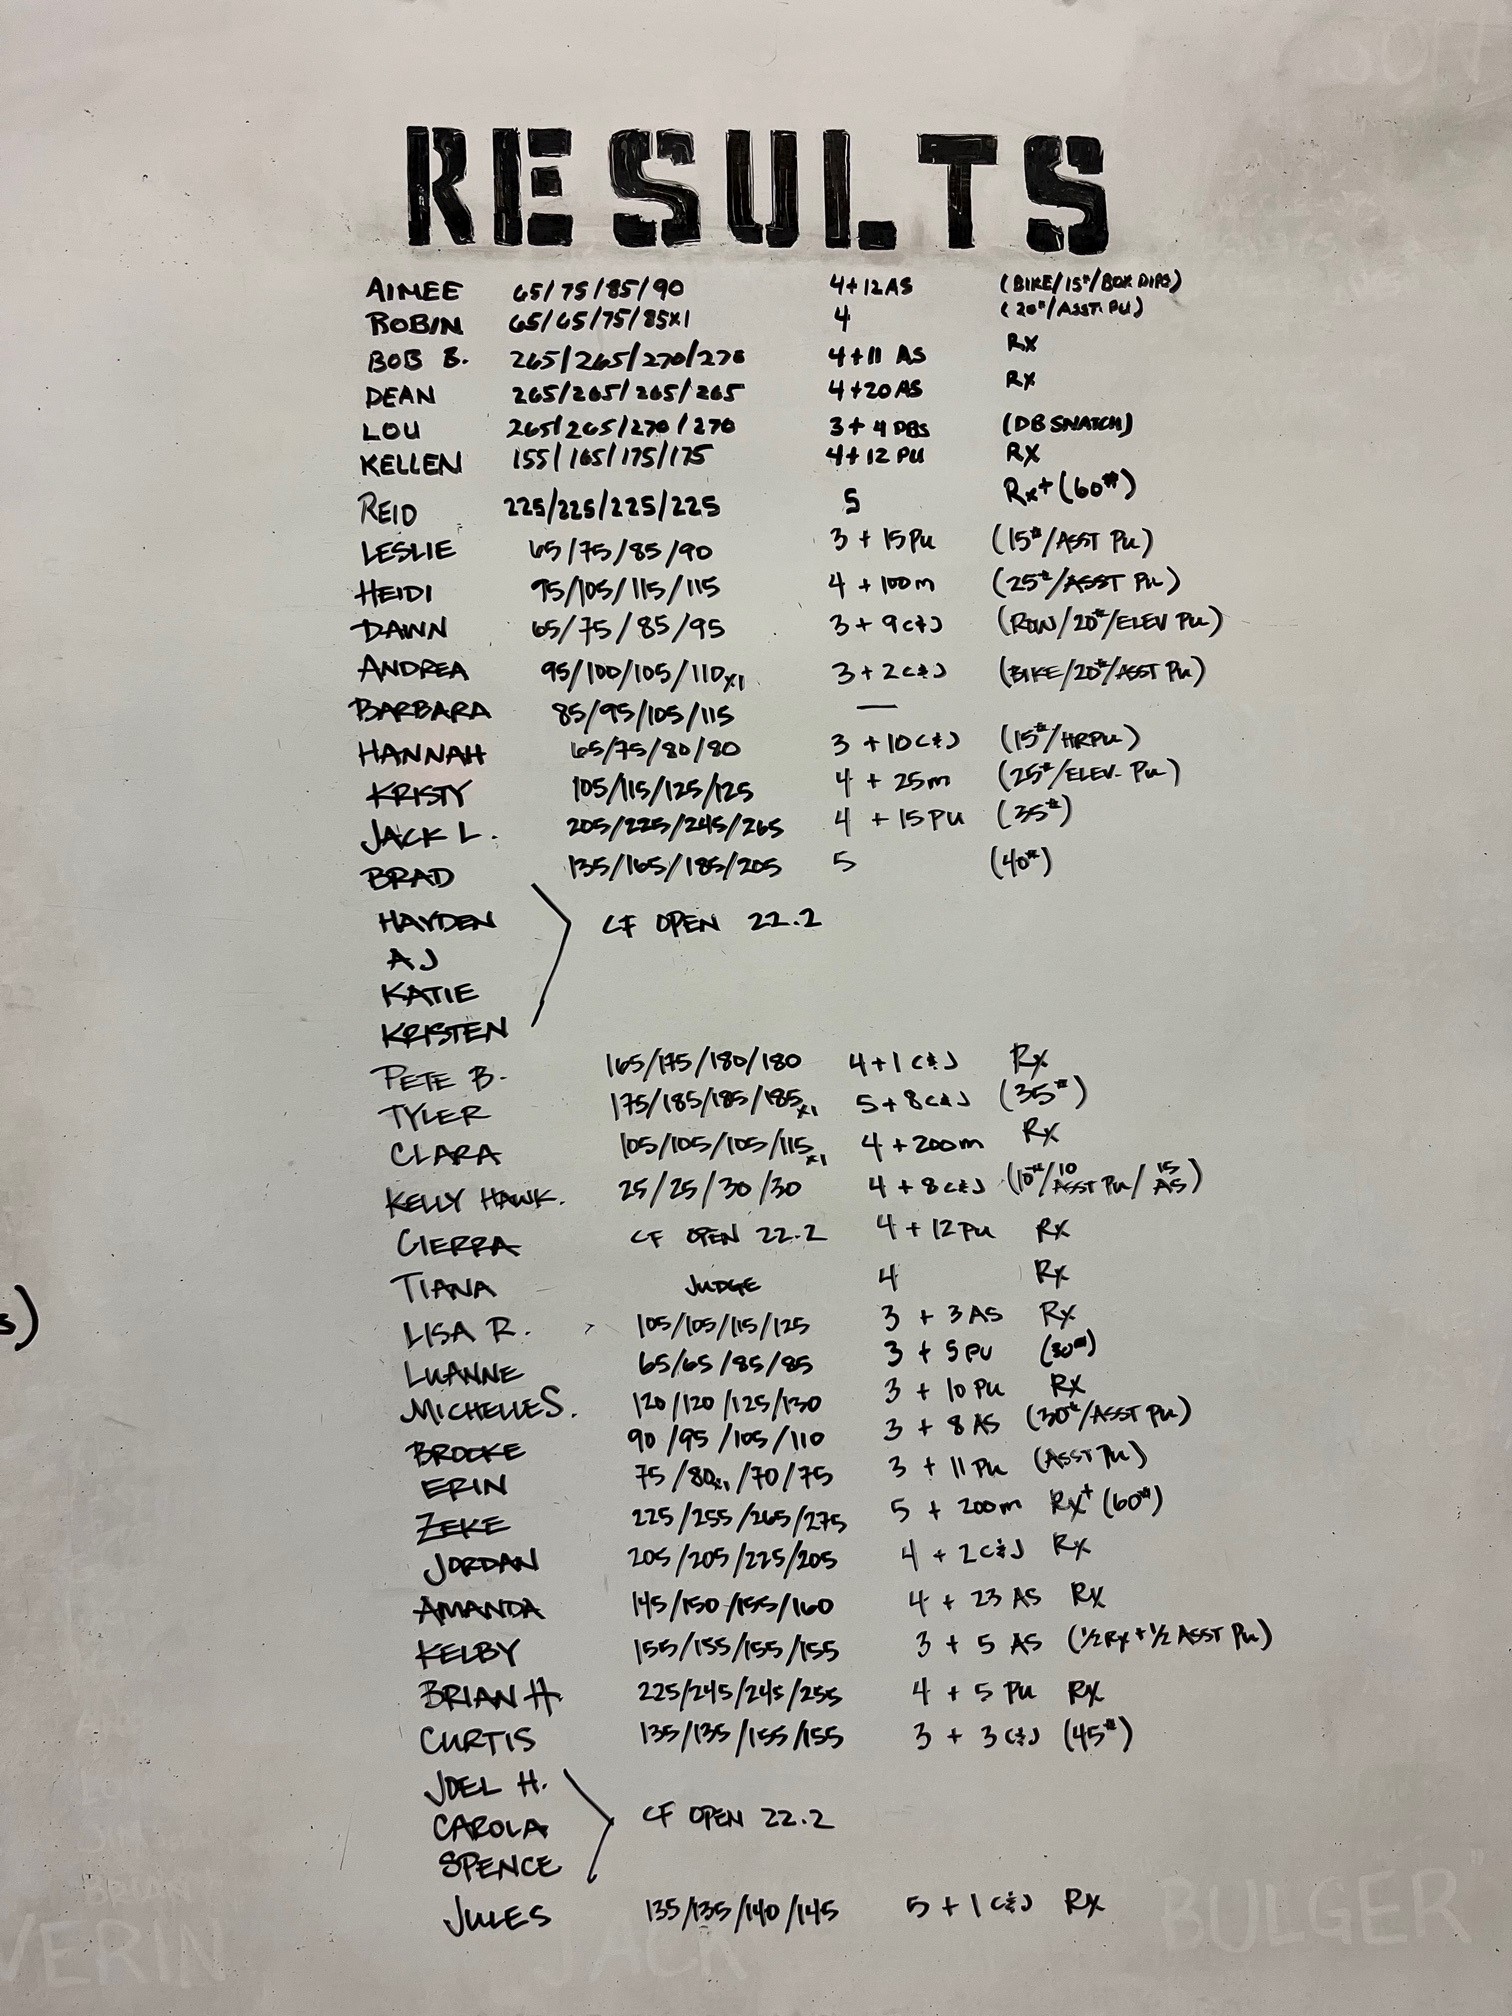 RESULTS
AIMEE 65/75/85/90 4+12AS (BIKE/15#/BOX DIPS)
ROBIN 65/65/75/85x1 4 (20#/ASST. PU)
BOB B. 265/265/270/270 4+11 AS Rx
DEAN 265/265/265/265 4+20AS Rx
LOU 265/265/270/270 3+4 DBS (DB SNATCH)
KELLEN 155/165/175/175 4+12 PU Rx
REID 225/225/225/225 5 Rx+ (60#)
LESLIE 65/75/85/90 3 + 15 PU (15#/ASST PU)
HEIDI 95/105/115/115 4 + 100m (25#/ASST PU)
DAWN 65/75/85/95 3 + 9 C&J (ROW/20#/ELEV PU)
ANDREA 95/100/105/110x1 3 + 2 C&J (BIKE/20#/ASST PU)
BARBARA 85/95/105/115 —
HANNAH 65/75/80/80 3 + 10 C&J (15#/HRPU)
KRISTY 105/115/125/125 4 + 25m (25#/ELEV. PU)
JACK L. 205/225/245/265 4 + 15 PU (35#)
BRAD 135/165/185/205 5 (40#)
HAYDEN CF OPEN 22.2
AJ
KATIE
KRISTEN
PETE B. 165/175/180/180 4+1 C&J Rx
TYLER 175/185/185/185x1 5+8 C&J (35#)
CLARA 105/105/105/115x1 4+200m Rx
KELLY HAWK. 25/25/30/30 4 + 8 C&J (10#/10 ASST PU/15 AS)
CIERRA CF OPEN 22.2 4 + 12 PU Rx
TIANA JUDGE 4 Rx
LISA R. 105/105/115/125 3 + 3 AS Rx
s)
LUANNE 65/65/85/85 3 + 5 PU (30#)
MICHELLE S. 120/120/125/130 3 + 10 PU Rx
BROOKE 90/95/105/110 3 + 8 AS (30#/ASST PU)
ERIN 75/80x1/70/75 3 + 11 PU (ASST PU)
ZEKE 225/255/265/275 5 + 200m Rx+ (60#)
JORDAN 205/205/225/205 4 + 2 C&J Rx
AMANDA 145/150/155/160 4 + 23 AS Rx
KELBY 155/155/155/155 3 + 5 AS (1/2 Rx + 1/2 ASST PU)
BRIAN H. 225/245/245/255 4 + 5 PU Rx
CURTIS 135/135/155/155 3 + 3 C&J (45#)
JOEL H.
CAROLA CF OPEN 22.2
SPENCE
JULES 135/135/140/145 5 + 1 C&J Rx
VERIN JACK BULGER"